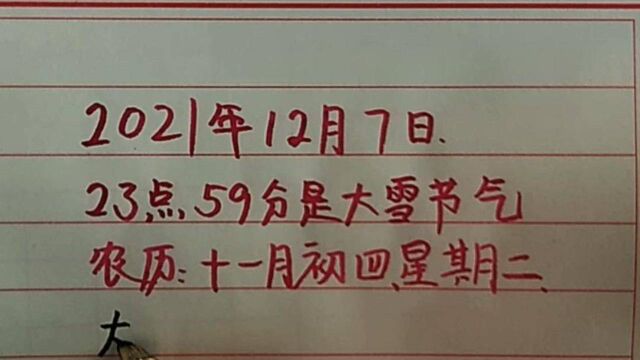 2021年12月7日.
23点59分是大雪节气
农历:十一月初四、星期二、
大